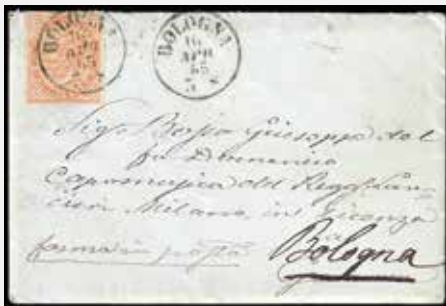 BOLOGNA
16
APR
65
BOLOGNA
16
APR
65
Sigr Giuseppe del
fu Domenico
Capomusica del Regg. Lan-
cieri Milano in Licenza
ferma in posta
Bologna